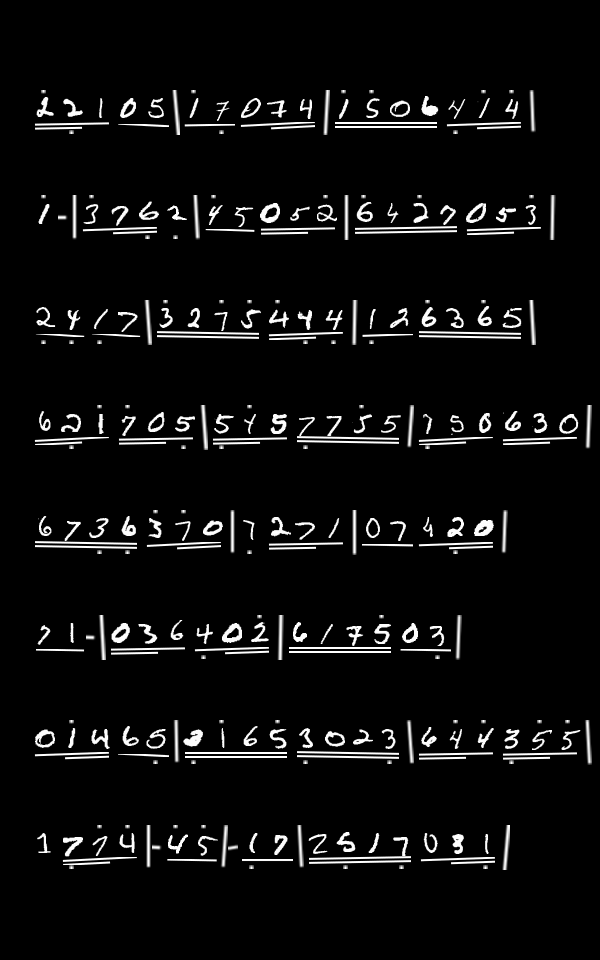 22105|17074|1506414
1-|3762|45052|6427053
2417|3275444|126365
621705|5457755|750630
6736370|7271|07420
71-|036402|617503
01465|21653023|644355
1774|-45|-17|2517031